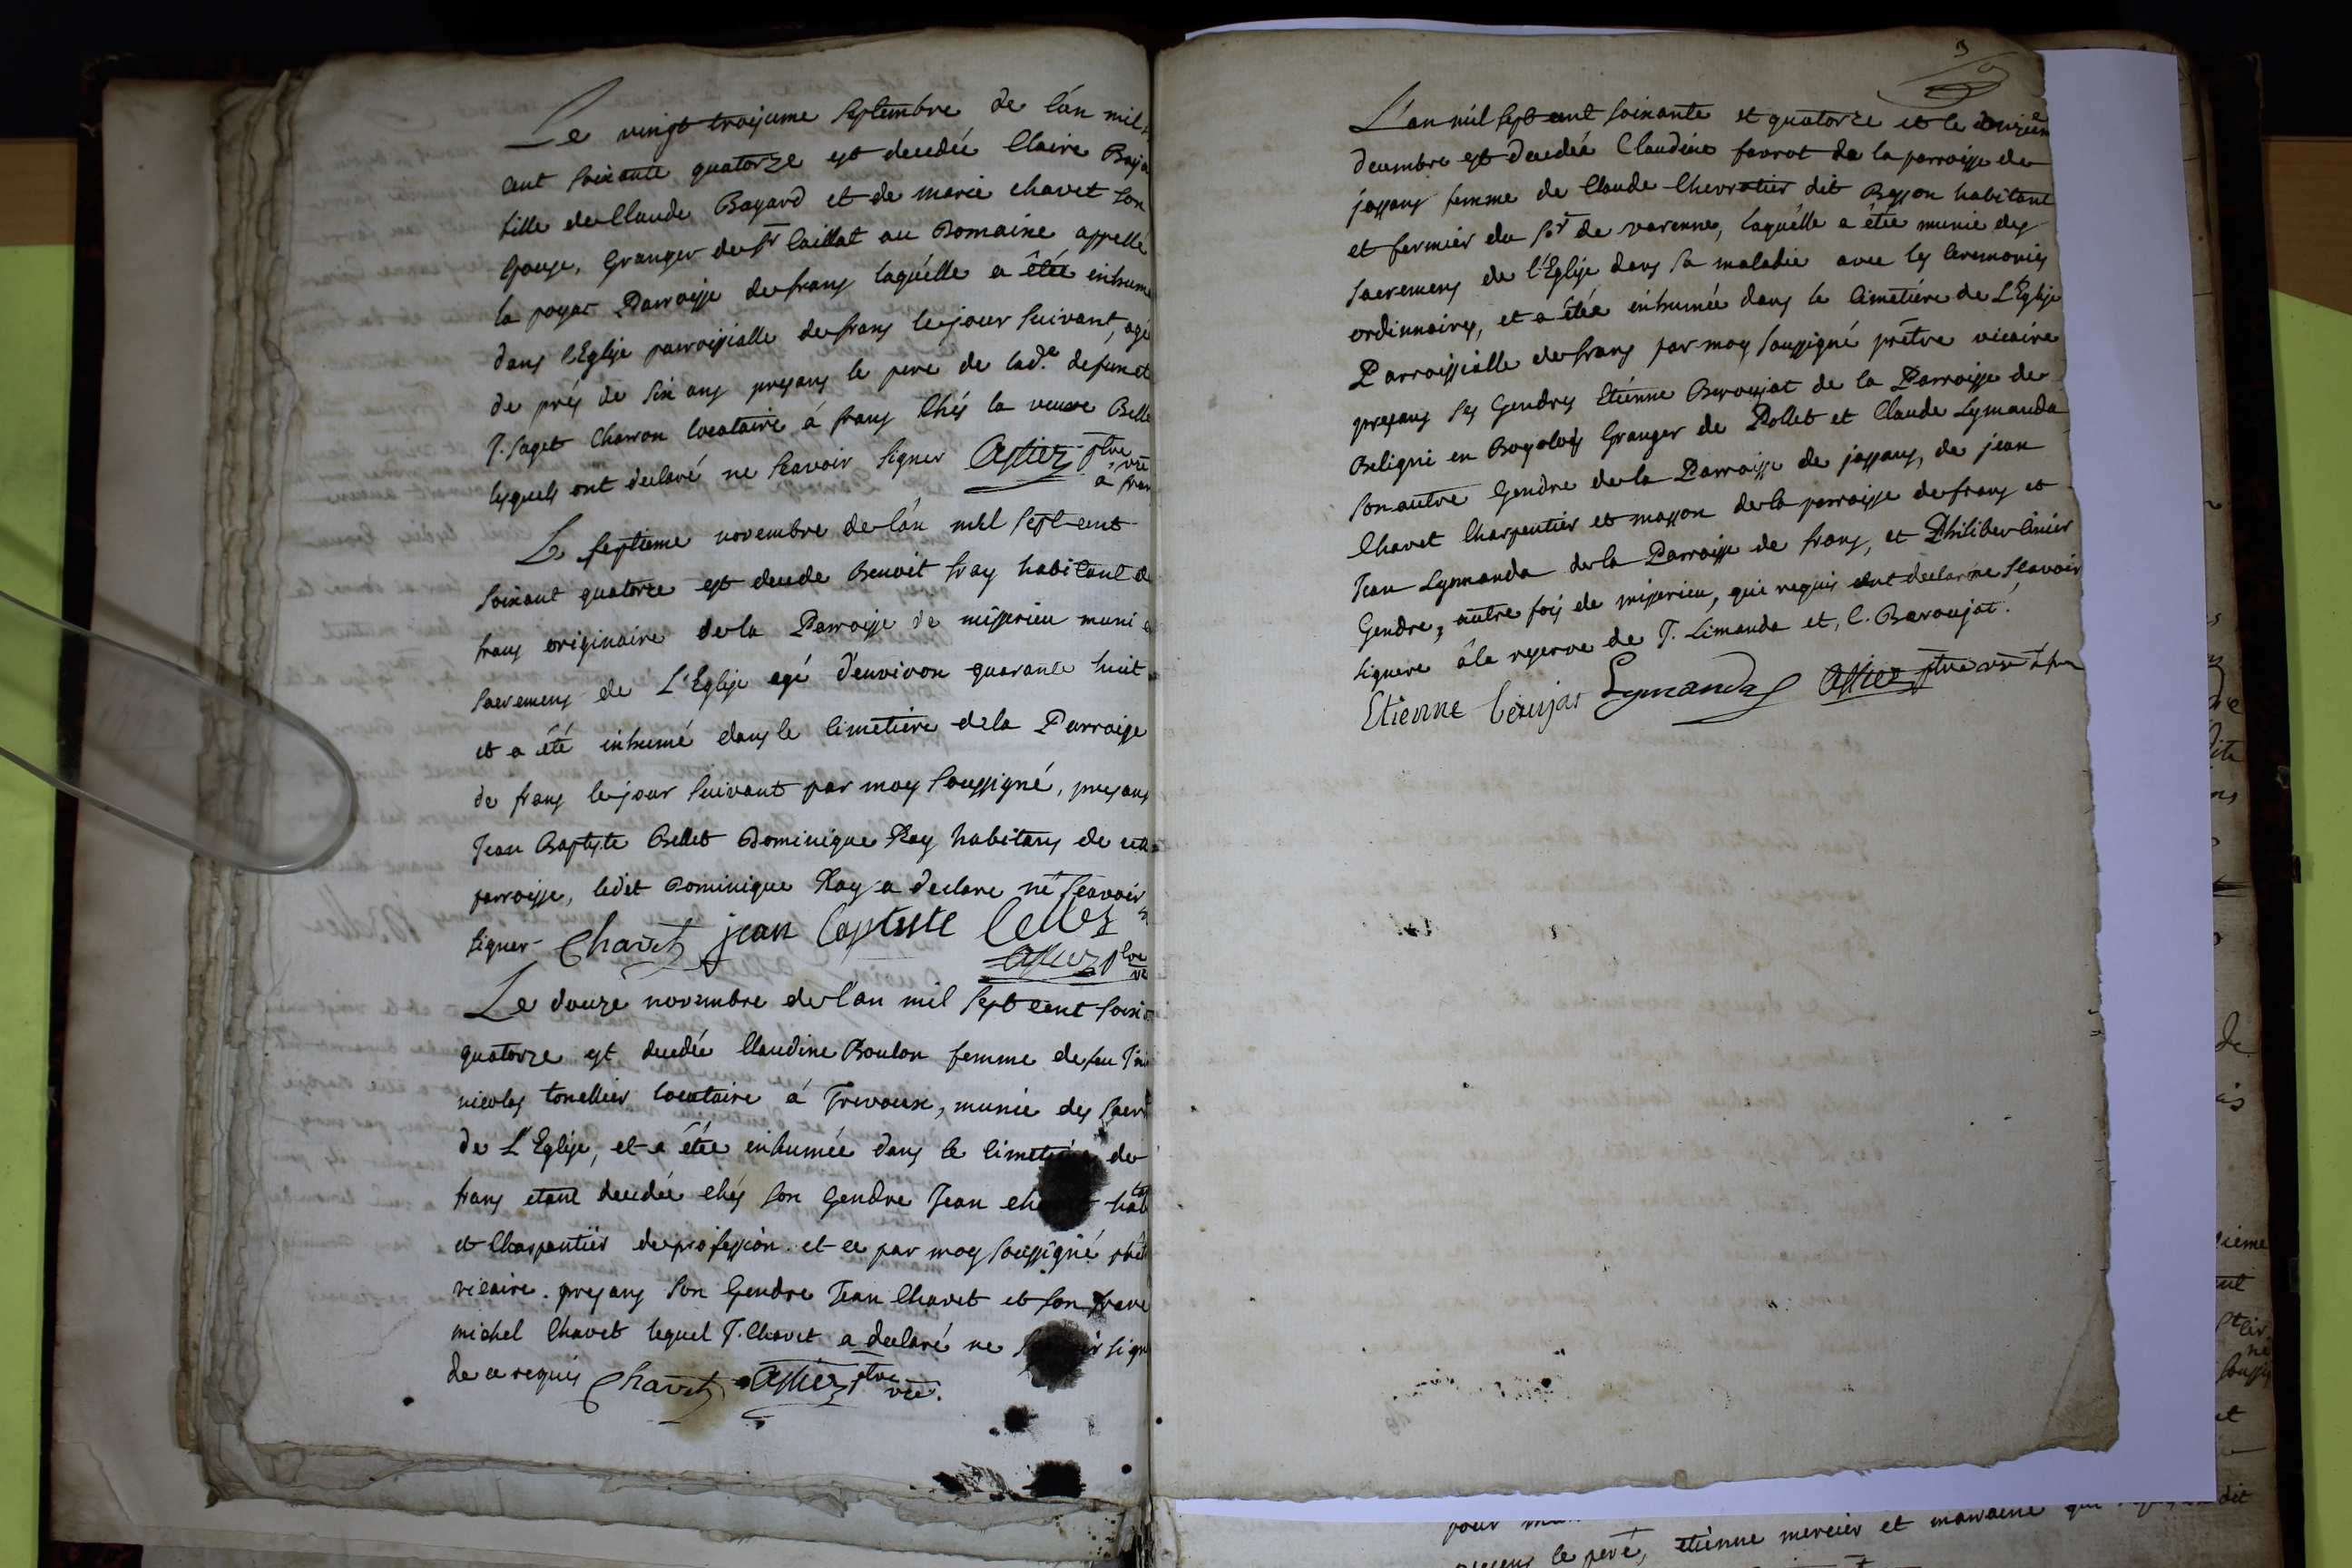 Le vingt troisieme septembre de l'an mil
cent soixante quatorze est decedée Claire Baya
fille de Claude Bayard et de marie chavet son
Epouse, Granger de Sr Caillat au Domaine appellé
la poyat Parroisse de frans laquélle a êtée inhumé
dans l'Eglise parroissialle de frans le jour suivant, agé
de prés de six ans presans le pere de lad.e defunct
J. Saget Charron locataire á frans Chés la veuve Belle
lesquels ont declaré ne sçavoir signer Astier ptre vre
a fran
Le septieme novembre de l'án mil sept cent
soixant quatorze est decede Benoit fray habitant d
frans originaire de la Parroisse de misserieu muni
sacremens de L'Eglise agé d'environ quarante huit
et a été inhumé dans le Cimetiere de la Parroisse
de frans le jour suivant par moy soussigné, presans
Jean Baptiste Bellet Dominique Ray habitans de cett
parroisse, ledit Dominique Ray a declare ne sçavoir
signer Chavet jean Baptiste bellet
Astier ptre
vre
Le douze novembre de l'an mil sept cent soix
quatorze est decedée Claudine Boulon femme de feu
nicolas tonellier locataire á Trevoux, munie des sacr
de L'Eglise, et a êtée inhumée dans le cimetiére de
frans etant decedée chés son Gendre Jean ch hab
et Charpentiér de profession. et ce par moy soussigné
vicaire. presans son Gendre Jean Chavet et son frere
michel Chavet lequel J. Chavet a declaré ne sign
de ce requis Chavet Astier ptre vre.
3
L'an mil sept cent soixante et quatorze et le
decembre est decedée Claudine favrot de la parroisse de
jassans femme de Claude Chevratier dit Besson habitant
et fermiér du Sr de varenne, laquélle a êtée munie des
sacremens de l'Eglise dans sa maladie avec les ceremonies
ordinnaires, et a êtée inhumée dans le Cimetiére de L'Eglise
Parroissialle de frans par moy soussigné prêtre vicaire
presans ses Gendres Etiénne Beroujat de la Parroisse de
Beligni en Bojolois Granger de Pollet et Claude Lymanda
son autre Gendre de la Parroisse de jassans, de jean
Chavet Charpentiér et masson de la parroisse de frans et
Jean Lymanda de la Parroisse de frans, et Philiber
Gendre, autre fois de miserieu, qui requis ont declarné sçavoir
signere â la reserve de J. Limanda et, C. Baroujat.
Etienne beroujat Lymanda Astier ptre vre á fran
etiénne merciér et